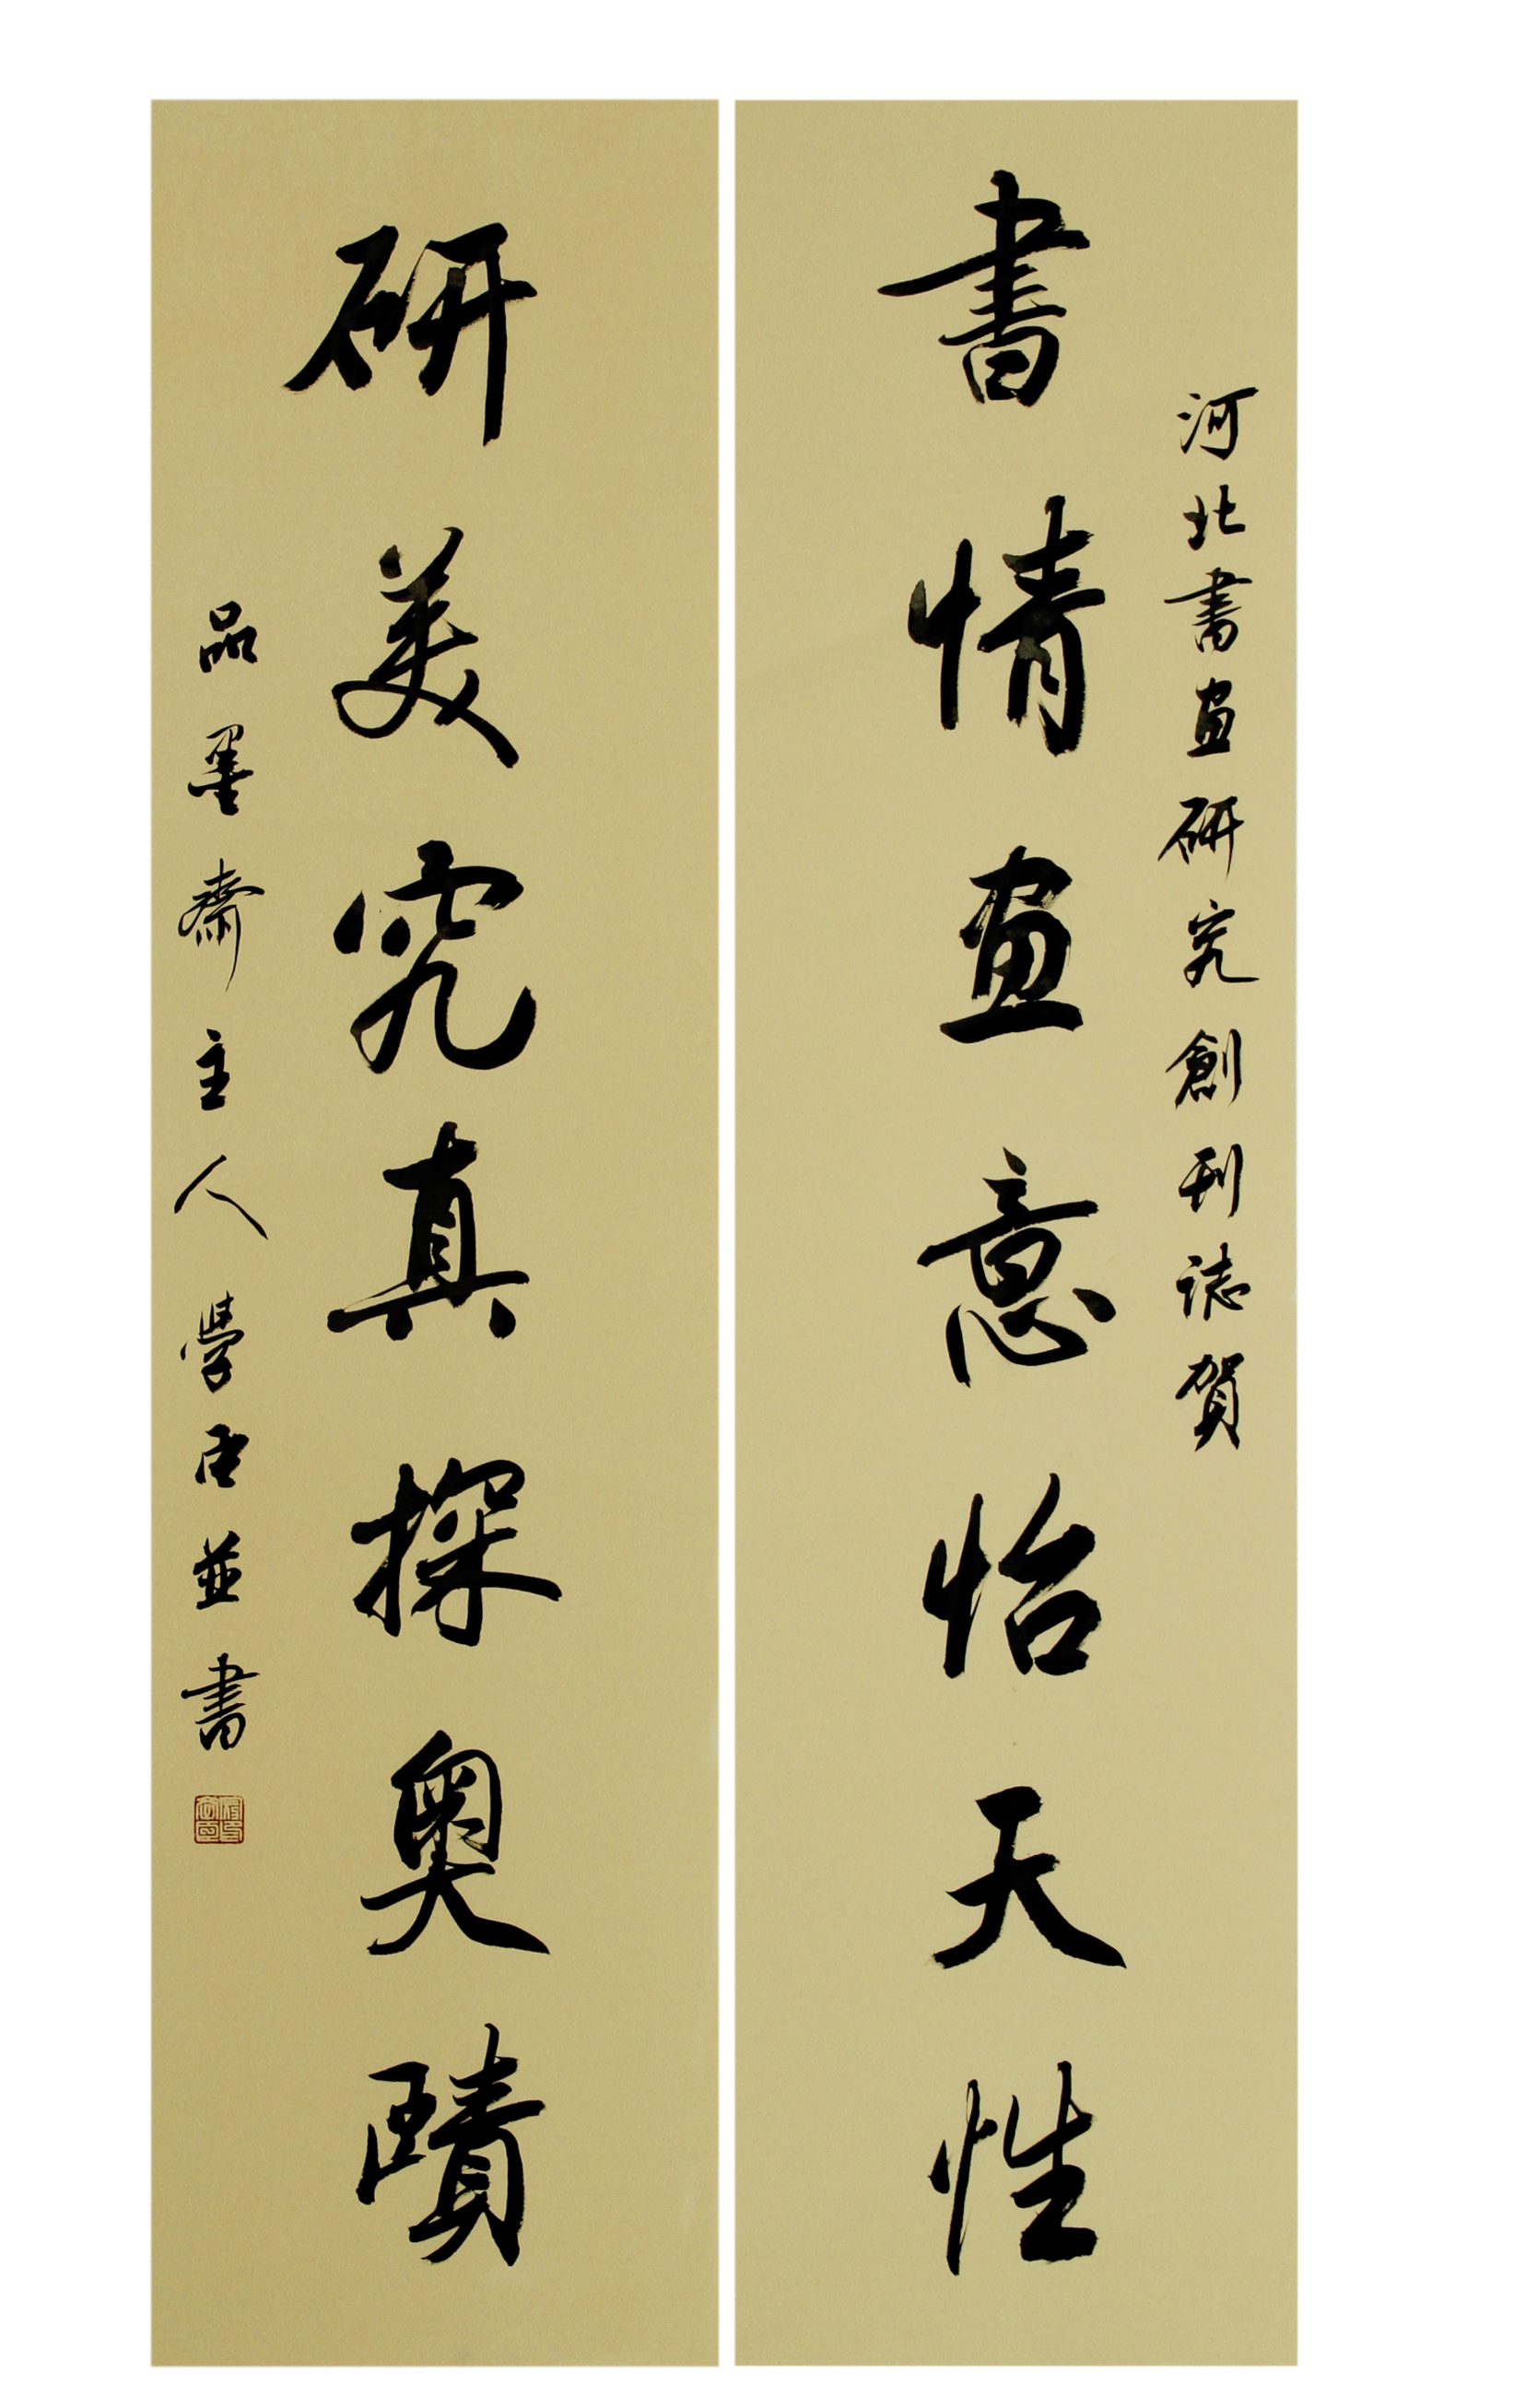 河北書画研究創刊誌賀
書情画意怡天性
研美究真探奧賾
品墨齋主人學君並書